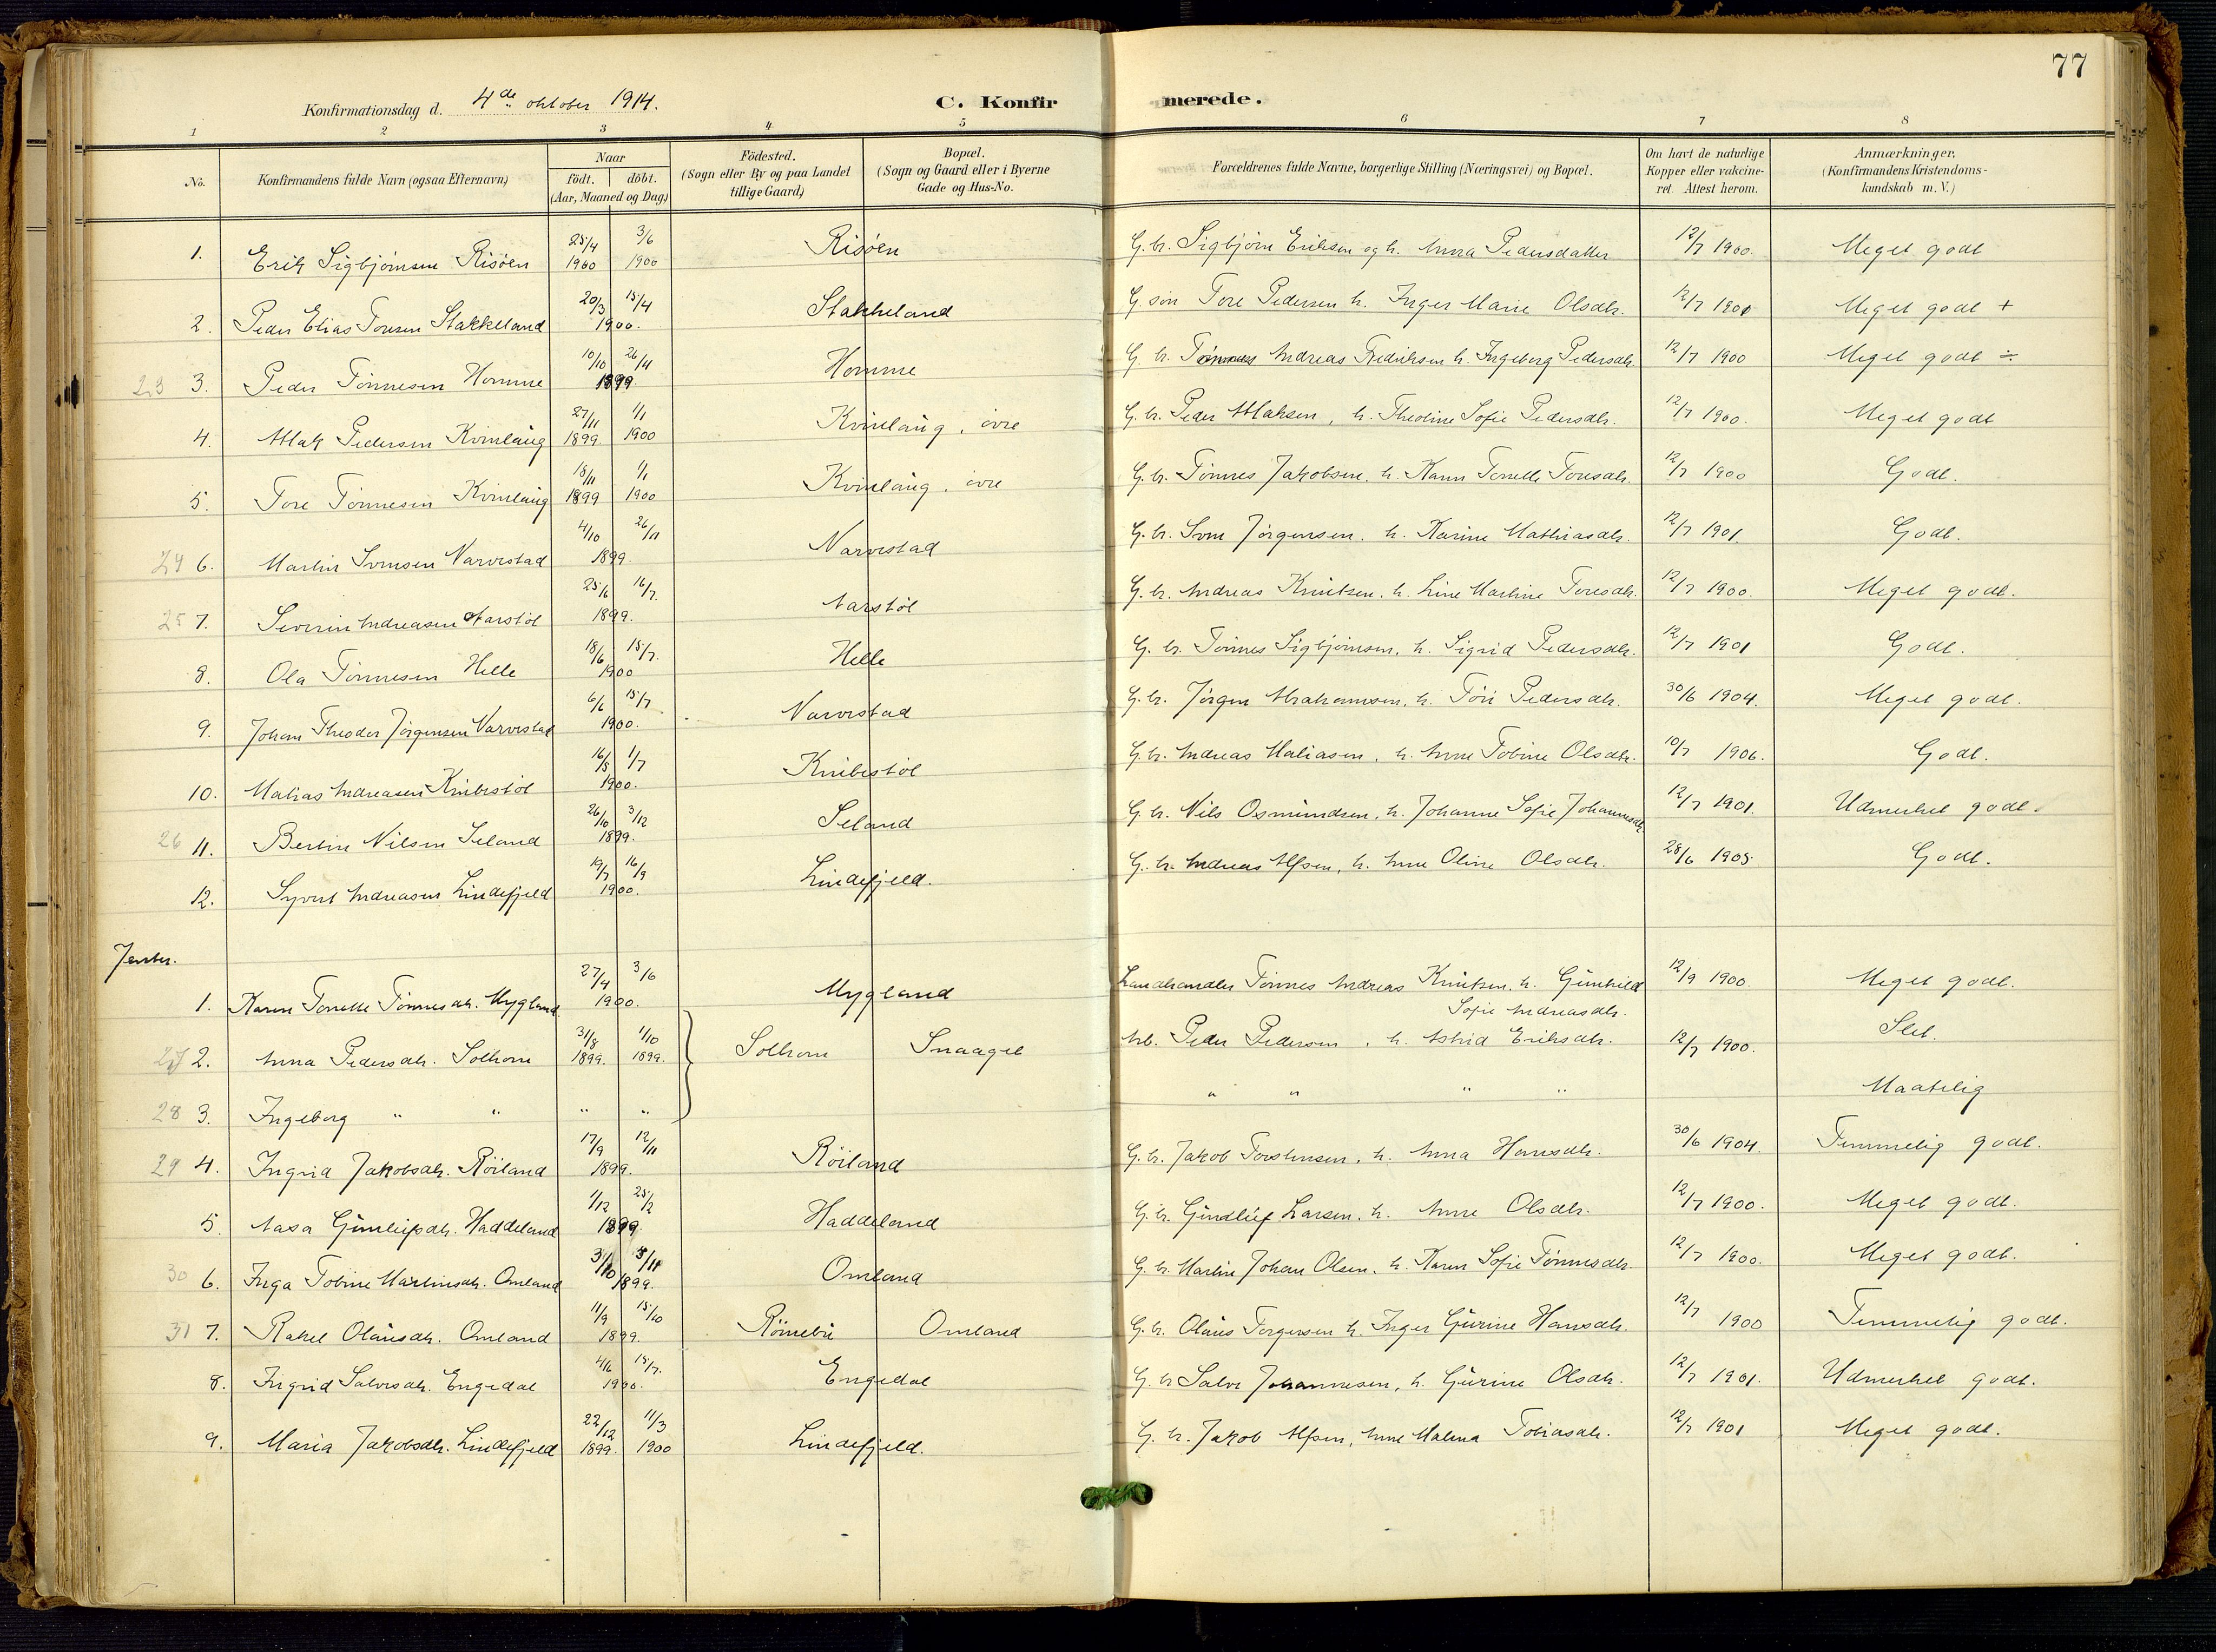 77
Konfirmationsdag d. 4de oktober 1914. C. Konfirmerede.
1 2 3 4 5 6 7 8
No. Konfirmandens fulde Navn (ogsaa Efternavn) Naar födt. döbt. (Aar, Maaned og Dag) Födested. (Sogn eller By og paa Landet tillige Gaard) Bopæl. (Sogn og Gaard eller i Byerne Gade og Hus-No. Forældrenes fulde Navne, borgerlige Stilling (Næringsvei) og Bopæl. Om havt de naturlige Kopper eller vakcineret. Attest herom. Anmærkninger, (Konfirmandens Kristendomskundskab m. V.)
1. Erik Sigbjörnsen Risöen 25/4 1900 3/6 1900 Risöen G. br. Sigbjörn Eriksen og h. Anna Pedersdatter 12/7 1900. Meget godt
2. Peder Elias Toresen Stakkeland 20/3 15/4 1900. Stakkeland G. søn Tore Pedersen h. Inger Marie Olsdtr. 12/7 1901 Meget godt +
23 3. Peder Tönnesen Homme 10/10 26/11 1899 Homme G. br. Tønnes Andreas Fredriksen h. Ingeborg Pedersdtr. 12/7 1900 Meget godt ÷
4. Atlak Pedersen Kvinlaug 27/11 1899 1/1 1900 Kvinlaug, övre G. br. Peder Atlaksen, h. Theoline Sofie Pedersdtr. 12/7 1900. Meget godt
5. Tore Tönnesen Kvinlaug 18/11 1899 1/1 1900 Kvinlaug, övre G. br. Tönnes Jakobsen, h. Karen Tonelle Toresdtr. 12/7 1900 Godt.
24 6. Martin Svensen Narvestad 4/10 26/11 1899. Narvestad G. br. Sven Jörgensen, h. Karine Mathiasdtr. 12/7 1901. Godt.
25 7. Severin Andreasen Aarstöl 25/6 16/7. 1899. Aarstöl G. br. Andreas Knutsen, h. Line Martine Toresdtr. 12/7 1900. Meget godt.
8. Ola Tönnesen Helle 18/6 15/7. 1900 Helle G. br. Tönnes Sigbjörnsen, h. Sigrid Pedersdtr. 12/7 1901 Godt.
9. Johan Theodor Jörgensen Narvestad 6/6 15/7 1900. Narvestad G. br. Jörgen Abrahamsen, h. Töri Pedersdtr. 30/6 1904. Meget godt.
10. Matias Andreasen Knibestöl 16/5 1/7 1900. Knibestöl G. br. Andreas Matiasen, h. Anne Tobine Olsdtr. 10/7 1906. Godt.
26 11. Bertine Nilsen Seland 26/10 3/12 1899. Seland G. br. Nils Osmundsen, h. Johanne Sofie Johannesdtr. 12/7 1901. Udmerket godt.
12. Syvert Andreasen Lindefjeld 19/7 16/9 1900. Lindefjeld. G. br. Andreas Alfsen, h. Anne Oline Olsdtr. 28/6 1905. Godt.
Jenter.
1. Karen Tonelle Tönnesdtr. Mygland 27/4 3/6 1900. Mygland Landhandler Tönnes Andreas Knutsen, h. Gunhild 12/9 1900 Meget godt.
Sofie Andreasdtr.
27 2. Anna Pedersdtr. Solhom 31/8 1899. 1/10 1899. Solhom Snaaget Arb. Peder Pedersen, h. Astrid Eriksdtr. 12/7 1900. Slet.
28 3. Ingeborg " " " " " " " " Maatelig
29 4. Ingrid Jakobsdtr. Röiland 17/9 12/11 1899. Röiland G. br. Jakob Torstensen, h. Anna Hansdtr. 30/6 1904. Temmelig godt.
5. Aasa Gunleifsdtr. Haddeland 1/12 25/12 1899 Haddeland G. br. Gundleif Larsen, h. Anne Olsdtr. 12/7 1900. Meget godt.
30 6. Inga Tobine Martinsdtr. Omland 1899. Omland G. br. Martin Johan Olsen, h. Karen Sofie Tönnesdtr. 12/7 1900. Meget godt.
31 7. Rakel Olausdtr. Omland 11/9 15/10 1899. Römebu Omland G. br. Olaus Torgersen h. Inger Gurine Hansdtr. 12/7 1900 Temmelig godt.
8. Ingrid Salvesdtr. Engedal 4/6 15/7. 1900. Engedal G. br Salve Johannesen, h. Gurine Olsdtr. 12/7 1901. Udmerket godt.
9. Maria Jakobsdtr. Lindefjeld 22/12 1899. 11/3 1900 Lindefjeld. G. br. Jakob Alfsen, Anne Malena Tobiasdtr. 12/7 1901 Meget godt.